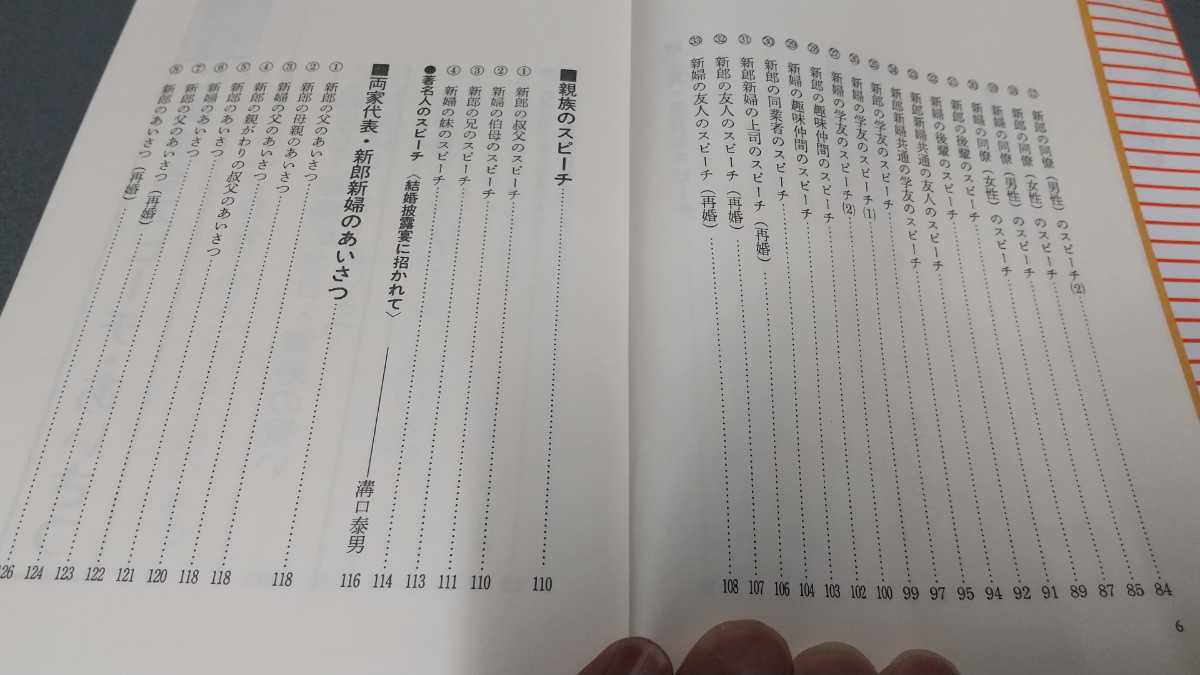 ⑰ 新郎の同僚（男性）のスピーチ(2) 84
⑱ 新郎の同僚（女性）のスピーチ 85
⑲ 新婦の同僚（男性）のスピーチ 87
⑳ 新婦の同僚（女性）のスピーチ 89
㉑ 新郎の後輩のスピーチ 91
㉒ 新婦の後輩のスピーチ 92
㉓ 新郎新婦共通の友人のスピーチ 94
㉔ 新郎新婦共通の学友のスピーチ 95
㉕ 新郎の学友のスピーチ 97
㉖ 新婦の学友のスピーチ(1) 99
㉗ 新婦の学友のスピーチ(2) 100
㉘ 新郎の趣味仲間のスピーチ 102
㉙ 新婦の趣味仲間のスピーチ 103
㉚ 新郎の同業者のスピーチ 104
㉛ 新郎新婦の上司のスピーチ（再婚） 106
㉜ 新郎の友人のスピーチ（再婚） 107
㉝ 新婦の友人のスピーチ（再婚） 108
6
■親族のスピーチ 110
① 新郎の叔父のスピーチ 110
② 新婦の伯母のスピーチ 111
③ 新郎の兄のスピーチ 113
④ 新婦の妹のスピーチ 114
●著名人のスピーチ〈結婚披露宴に招かれて〉――溝口泰男 116
■両家代表・新郎新婦のあいさつ 118
① 新郎の父のあいさつ 118
② 新郎の母親のあいさつ 118
③ 新婦の父のあいさつ 120
④ 新郎の親がわりの叔父のあいさつ 121
⑤ 新郎のあいさつ 122
⑥ 新婦のあいさつ 123
⑦ 新郎の父のあいさつ（再婚） 124
⑧ 新郎のあいさつ（再婚） 126